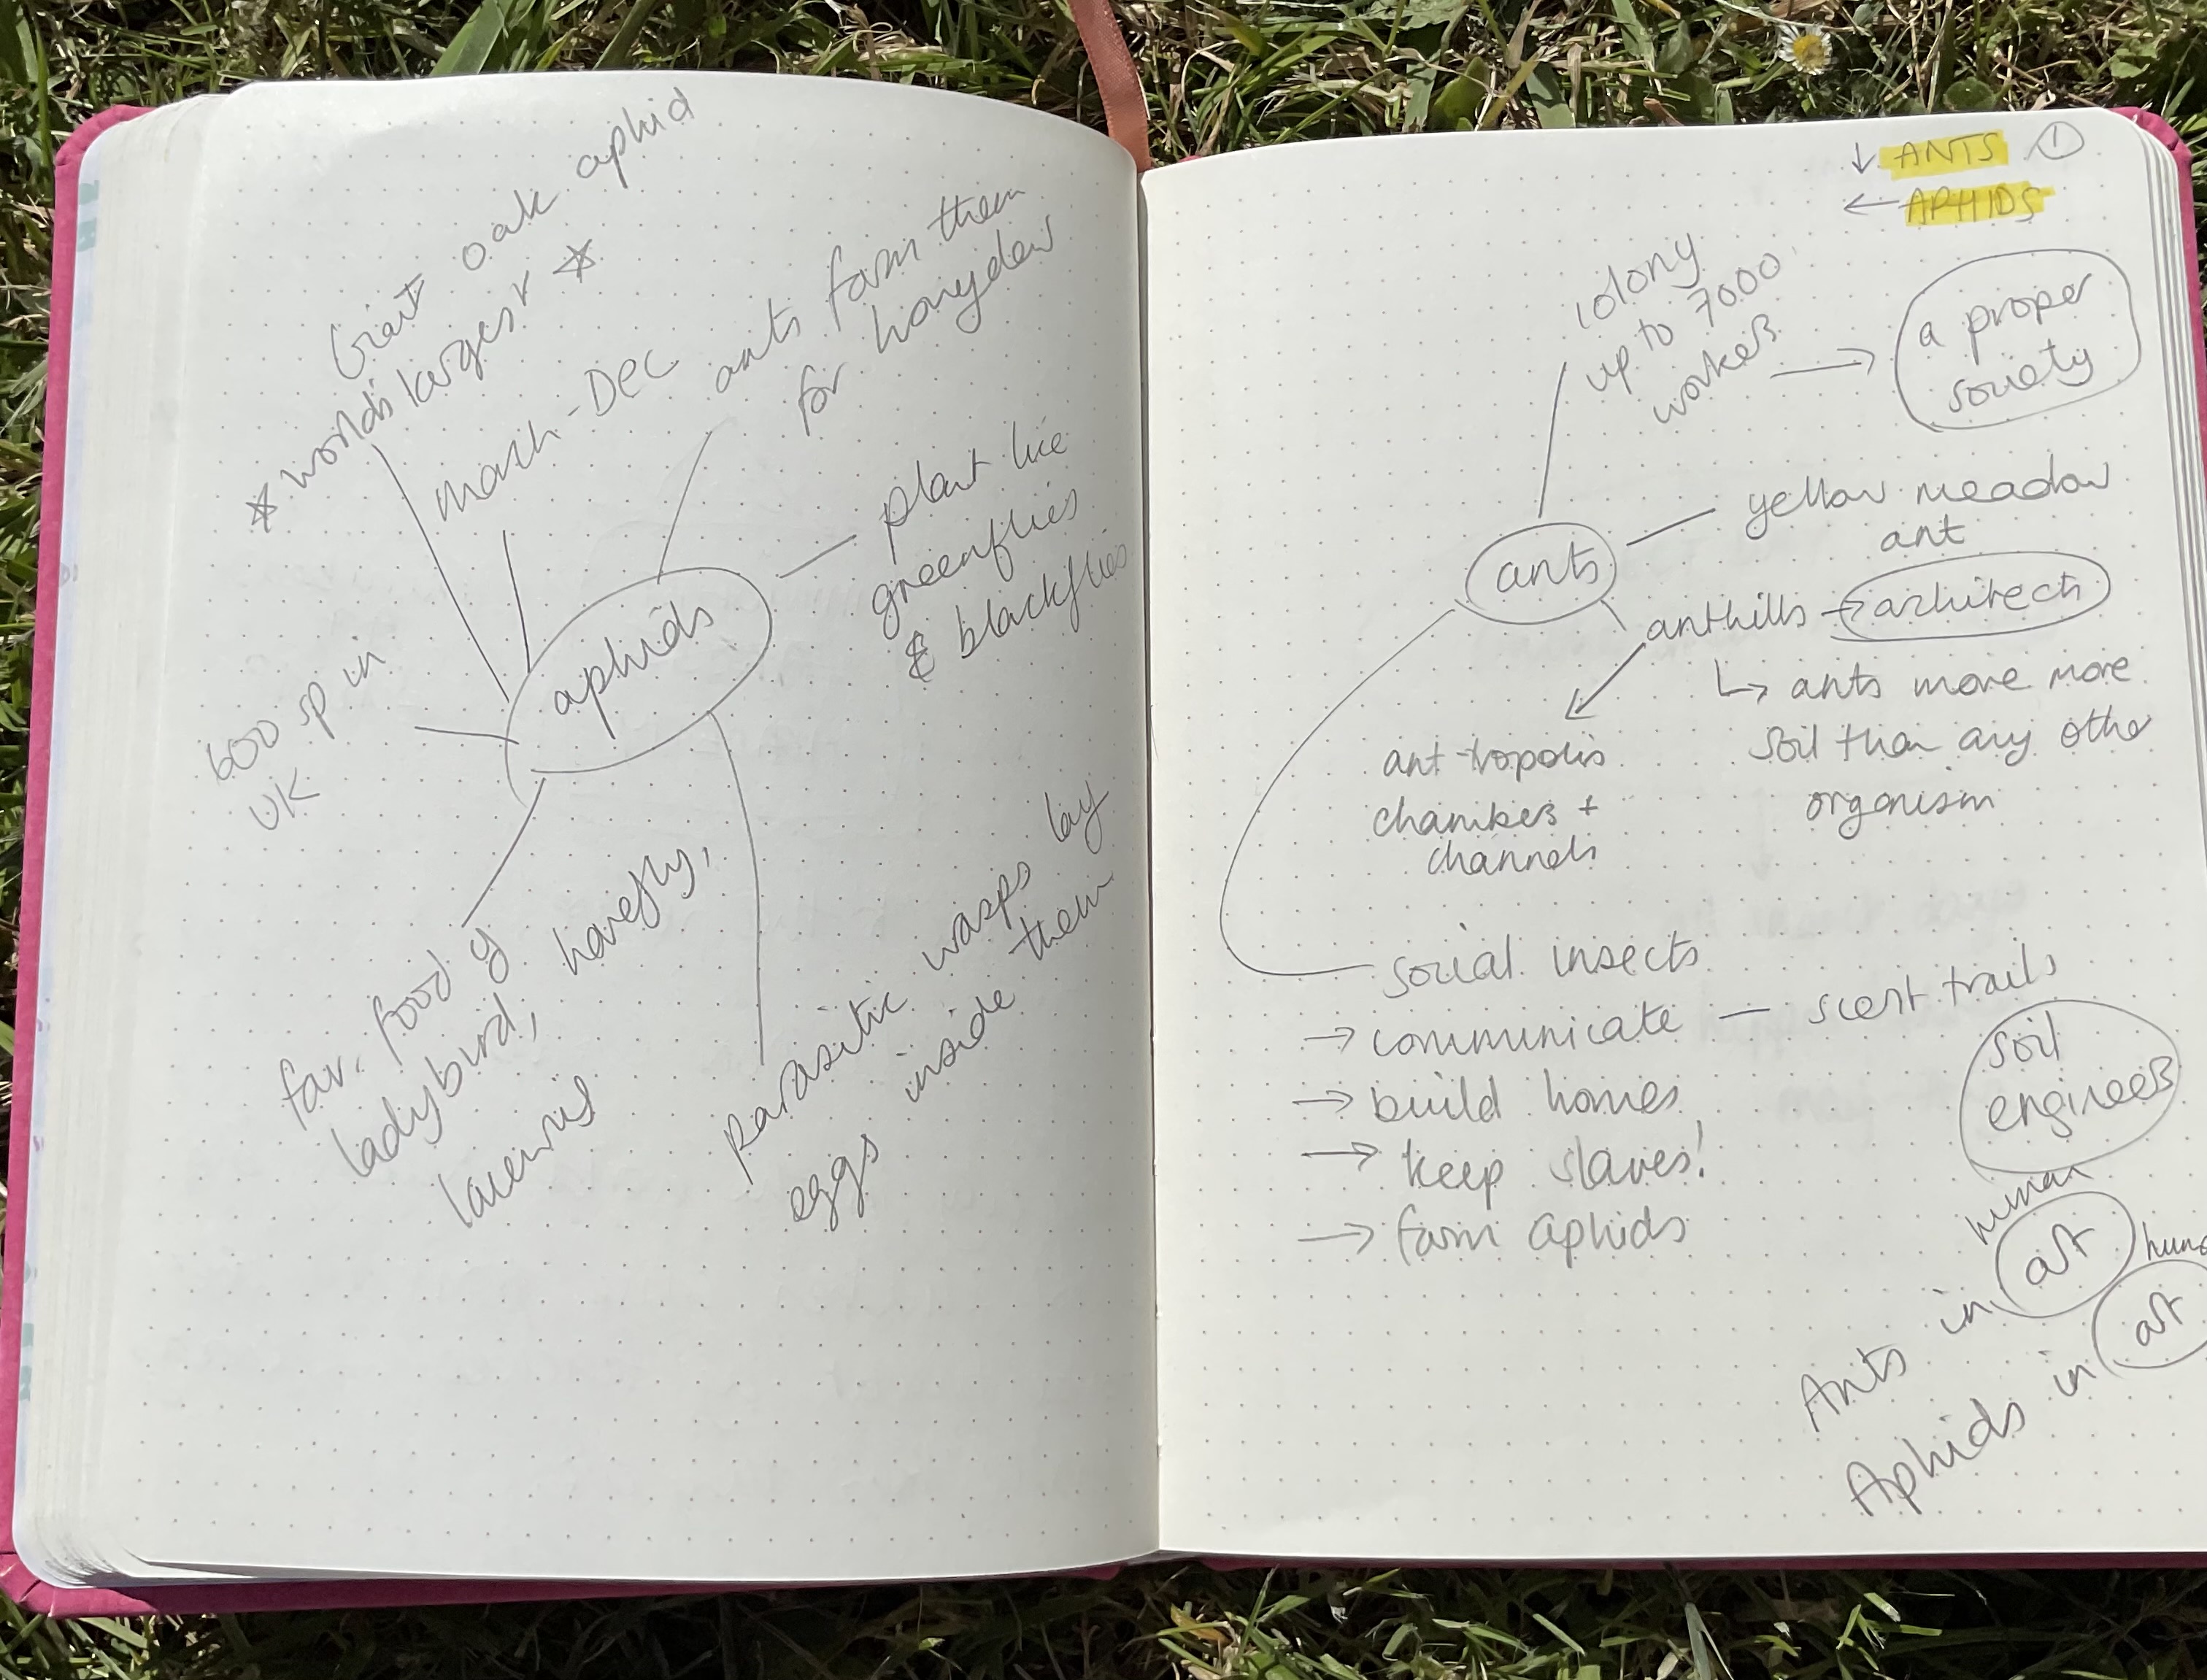 Giant oak aphid
☆ world's largest ☆
March - DEC
ants farm them
for honeydew
plant lice
greenflies
& blackflies
aphids
600 sp in
UK
fav. food of
ladybird, hoverfly,
lacewing
parasitic wasps lay
eggs inside them
↓ ANTS ①
← APHIDS
colony
up to 7000
workers →
a proper
society
ants
yellow meadow
ant
anthills → architects
↳ ants move more
soil than any other
organism
ant-tropolis
chambers +
channels
social insects
→ communicate — scent trails
→ build homes
→ keep slaves!
→ farm aphids
soil
engineers
human
Ants in art
Aphids in art